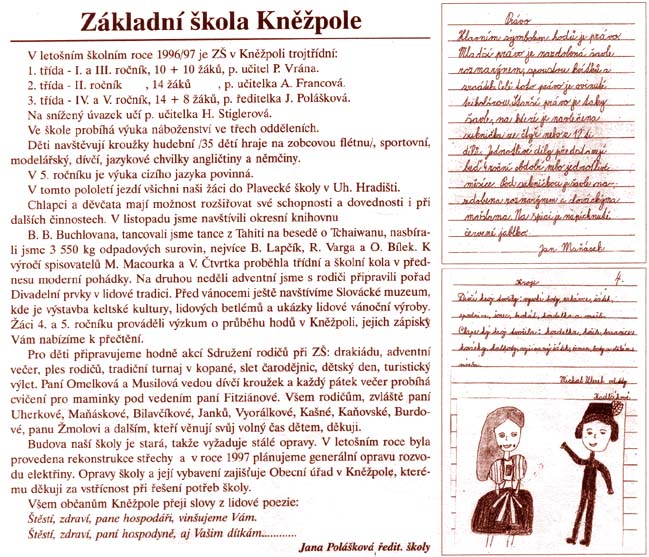 Základní škola Kněžpole
V letošním školním roce 1996/97 je ZŠ v Kněžpoli trojtřídní:
1. třída - I. a III. ročník, 10 + 10 žáků, p. učitel P. Vrána.
2. třída - II. ročník , 14 žáků , p. učitelka A. Francová.
3. třída - IV. a V. ročník, 14 + 8 žáků, p. ředitelka J. Polášková.
Na snížený úvazek učí p. učitelka H. Stiglerová.
Ve škole probíhá výuka náboženství ve třech odděleních.
Děti navštěvují kroužky hudební /35 dětí hraje na zobcovou flétnu/, sportovní,
modelářský, dívčí, jazykové chvilky angličtiny a němčiny.
V 5. ročníku je výuka cizího jazyka povinná.
V tomto pololetí jezdí všichni naši žáci do Plavecké školy v Uh. Hradišti.
Chlapci a děvčata mají možnost rozšiřovat své schopnosti a dovednosti i při
dalších činnostech. V listopadu jsme navštívili okresní knihovnu
B. B. Buchlovana, tancovali jsme tance z Tahiti na besedě o Tchaiwanu, nasbíra-
li jsme 3 550 kg odpadových surovin, nejvíce B. Lapčík, R. Varga a O. Bílek. K
výročí spisovatelů M. Macourka a V. Čtvrtka proběhla třídní a školní kola v před-
nesu moderní pohádky. Na druhou neděli adventní jsme s rodiči připravili pořad
Divadelní prvky v lidové tradici. Před vánocemi ještě navštívíme Slovácké muzeum,
kde je výstavba keltské kultury, lidových betlémů a ukázky lidové vánoční výroby.
Žáci 4. a 5. ročníku prováděli výzkum o průběhu hodů v Kněžpoli, jejich zápisky
Vám nabízíme k přečtění.
Pro děti připravujeme hodně akcí Sdružení rodičů při ZŠ: drakiádu, adventní
večer, ples rodičů, tradiční turnaj v kopané, slet čarodějnic, dětský den, turistický
výlet. Paní Omelková a Musilová vedou dívčí kroužek a každý pátek večer probíhá
cvičení pro maminky pod vedením paní Fitziánové. Všem rodičům, zvláště paní
Uherkové, Maňáskové, Bilavčíkové, Janků, Vyorálkové, Kašné, Kaňovské, Burdo-
vé, panu Žmolovi a dalším, kteří věnují svůj volný čas dětem, děkuji.
Budova naší školy je stará, takže vyžaduje stálé opravy. V letošním roce byla
provedena rekonstrukce střechy a v roce 1997 plánujeme generální opravu rozvo-
du elektřiny. Opravy školy a její vybavení zajišťuje Obecní úřad v Kněžpole, které-
mu děkuji za vstřícnost při řešení potřeb školy.
Všem občanům Kněžpole přeji slovy z lidové poezie:
Štěstí, zdraví, pane hospodáři, vinšujeme Vám.
Štěstí, zdraví, paní hospodyně, aj Vašim dítkám............
Jana Polášková ředit. školy
Právo
Hlavním symbolem hodů je právo.
Mladší právo je nazdobená šavle
rozmarýnem, spoustou kvítků a
Celé toto právo je ovinuté
trikolórou. Starší právo je taky
šavle, na které je navlečena
suknička ze čtyř nebo z 12 ti
dílů. Jednotlivé díly představují
buď 4 roční období nebo jednotlivé
měsíce. Pod sukničkou je šavle na-
zdobena rozmarýnem a
mašlama. Na špici je napíchnuté
červené jablko.
Jan Maňásek
Kroje 4.
Dívčí kroj tvoří:
spodnice,
Chlapecký kroj tvoří: kordulka,
Michal Uherek